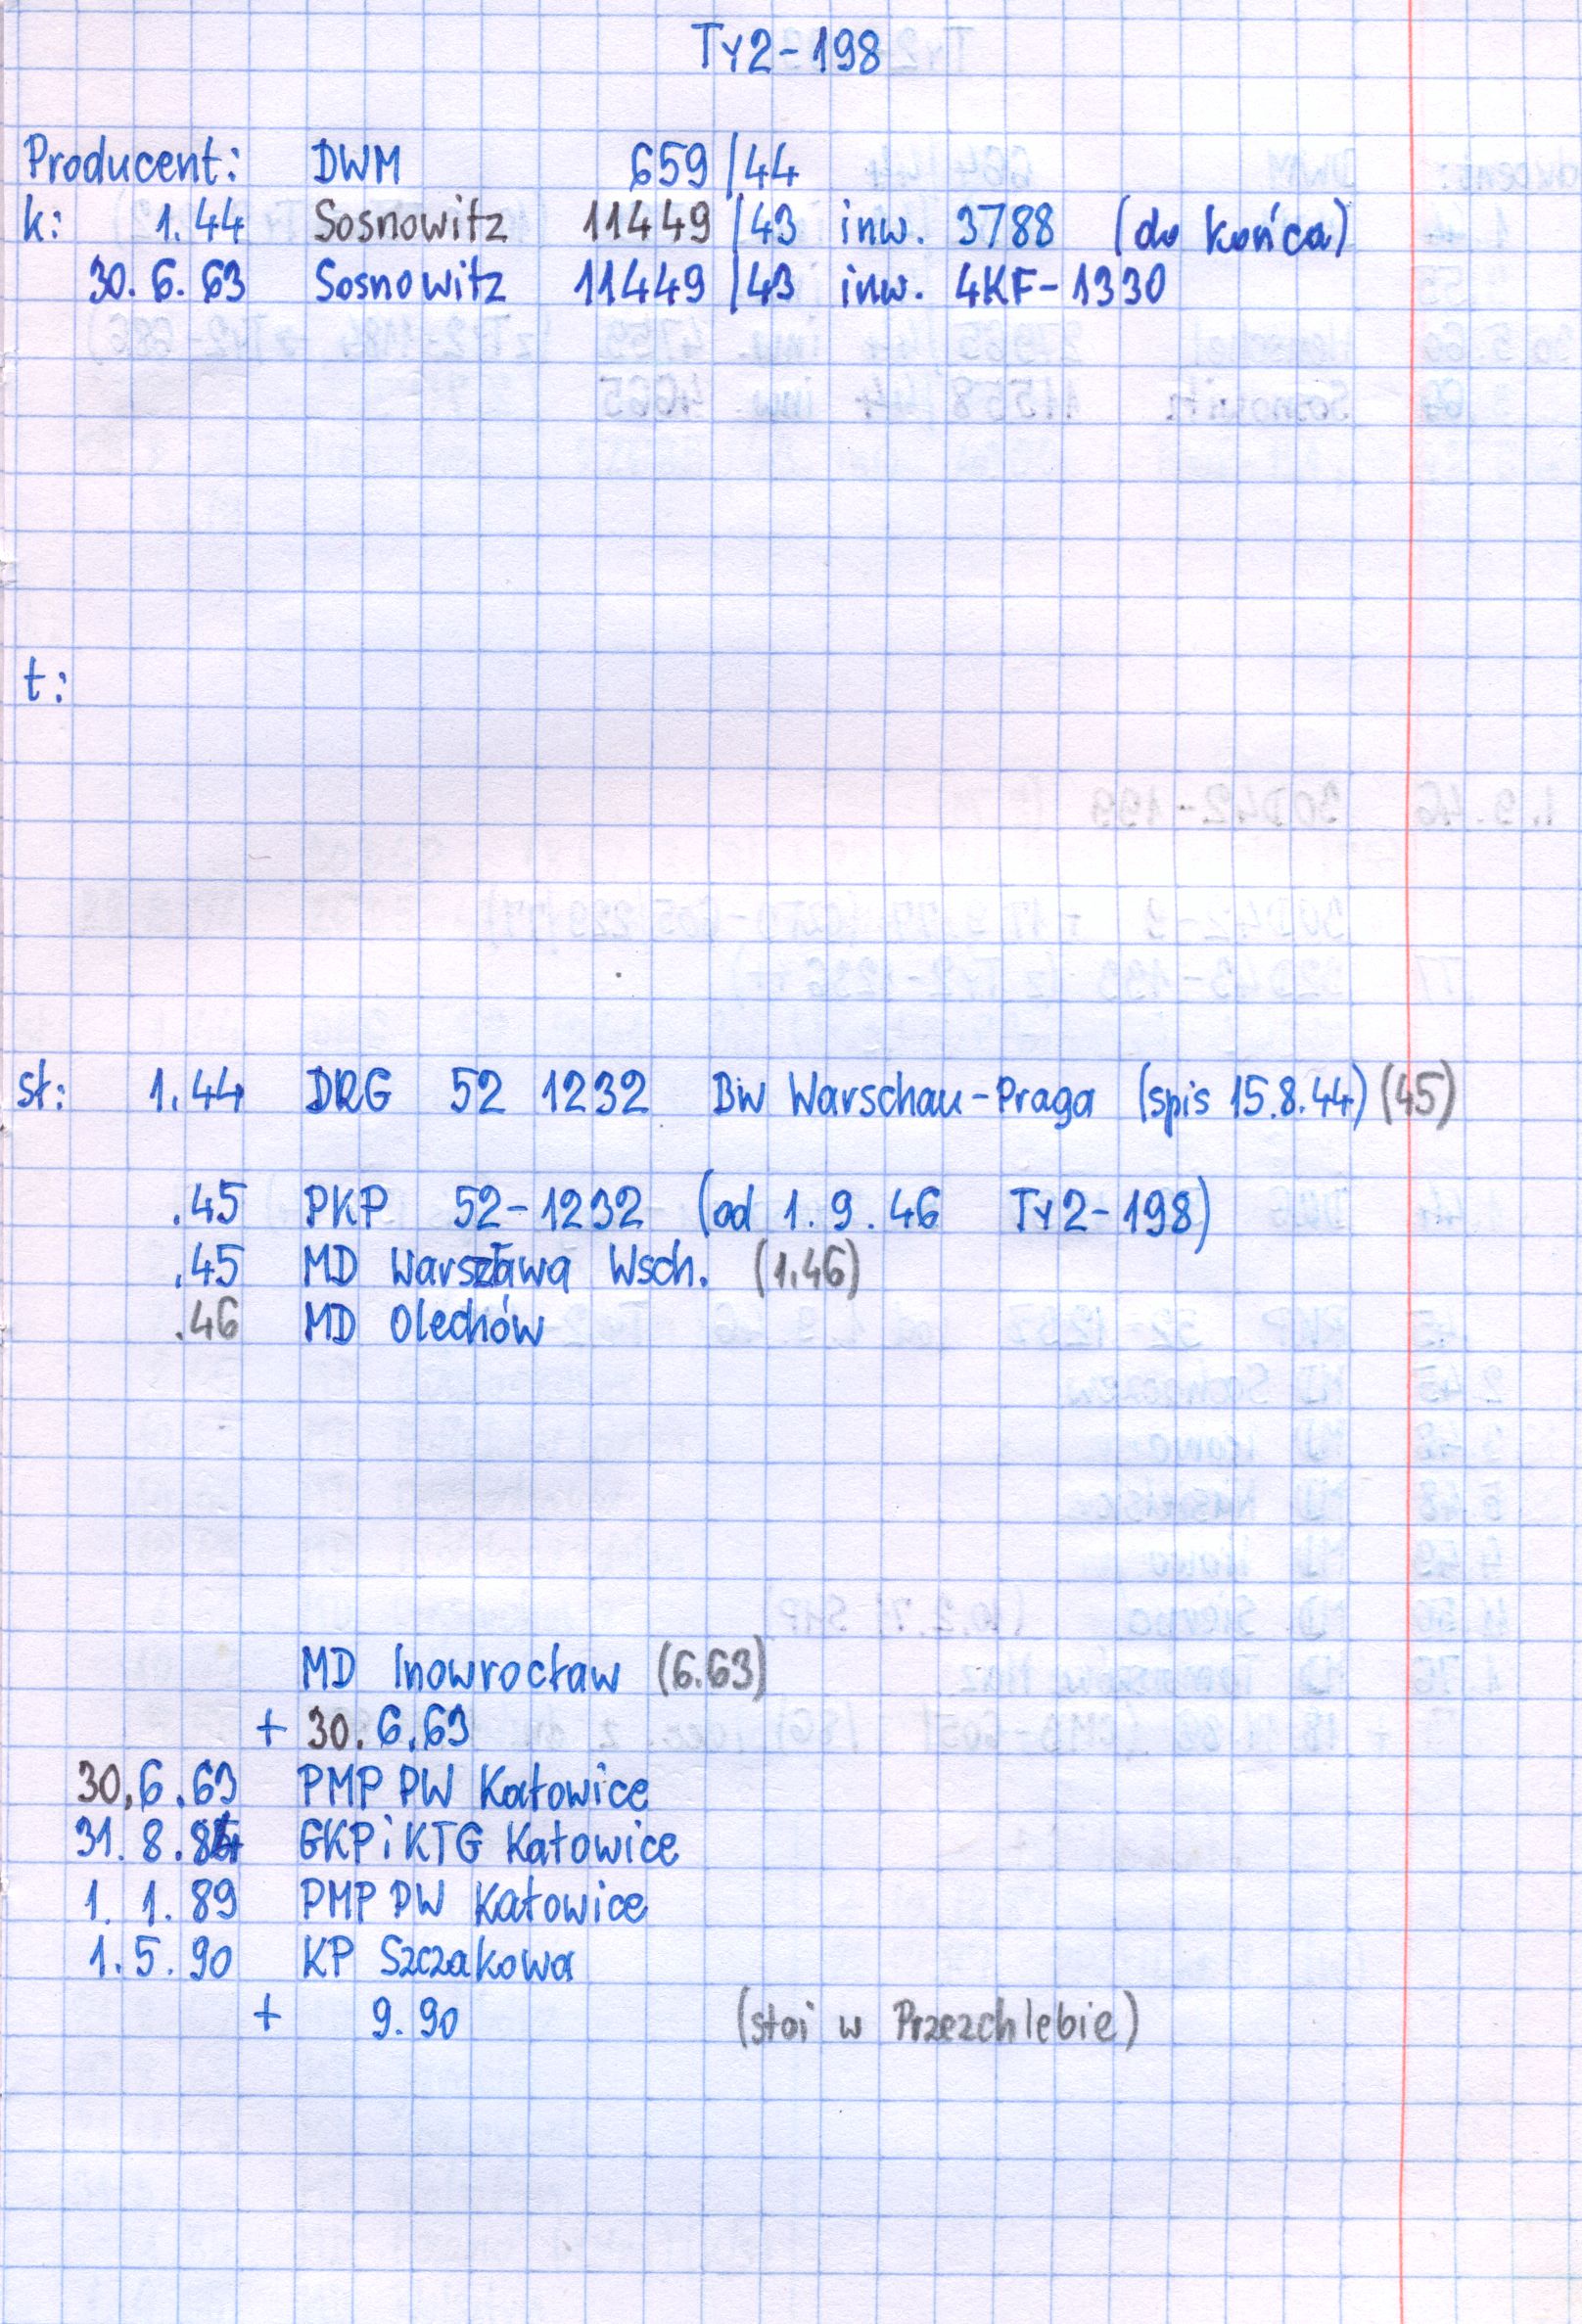 Ty2-198
Producent: DWM 659/44
k: 1.44 Sosnowitz 11449/43 inw. 3788 (do końca)
30.6.63 Sosnowitz 11449/43 inw. 4KF-1330
t:
st: 1.44 DRG 52 1232 Bw Warschau-Praga (spis 15.8.44) (45)
.45 PKP 52-1232 (od 1.9.46 Ty2-198)
.45 MD Warszawa Wsch. (1.46)
.46 MD Olechów
MD Inowrocław (6.63)
+ 30.6.63
30.6.63 PMP PW Katowice
31.8.84 GKPiKTG Katowice
1.1.89 PMP PW Katowice
1.5.90 KP Szczakowa
+ 9.90 (stoi w Przezchlebie)